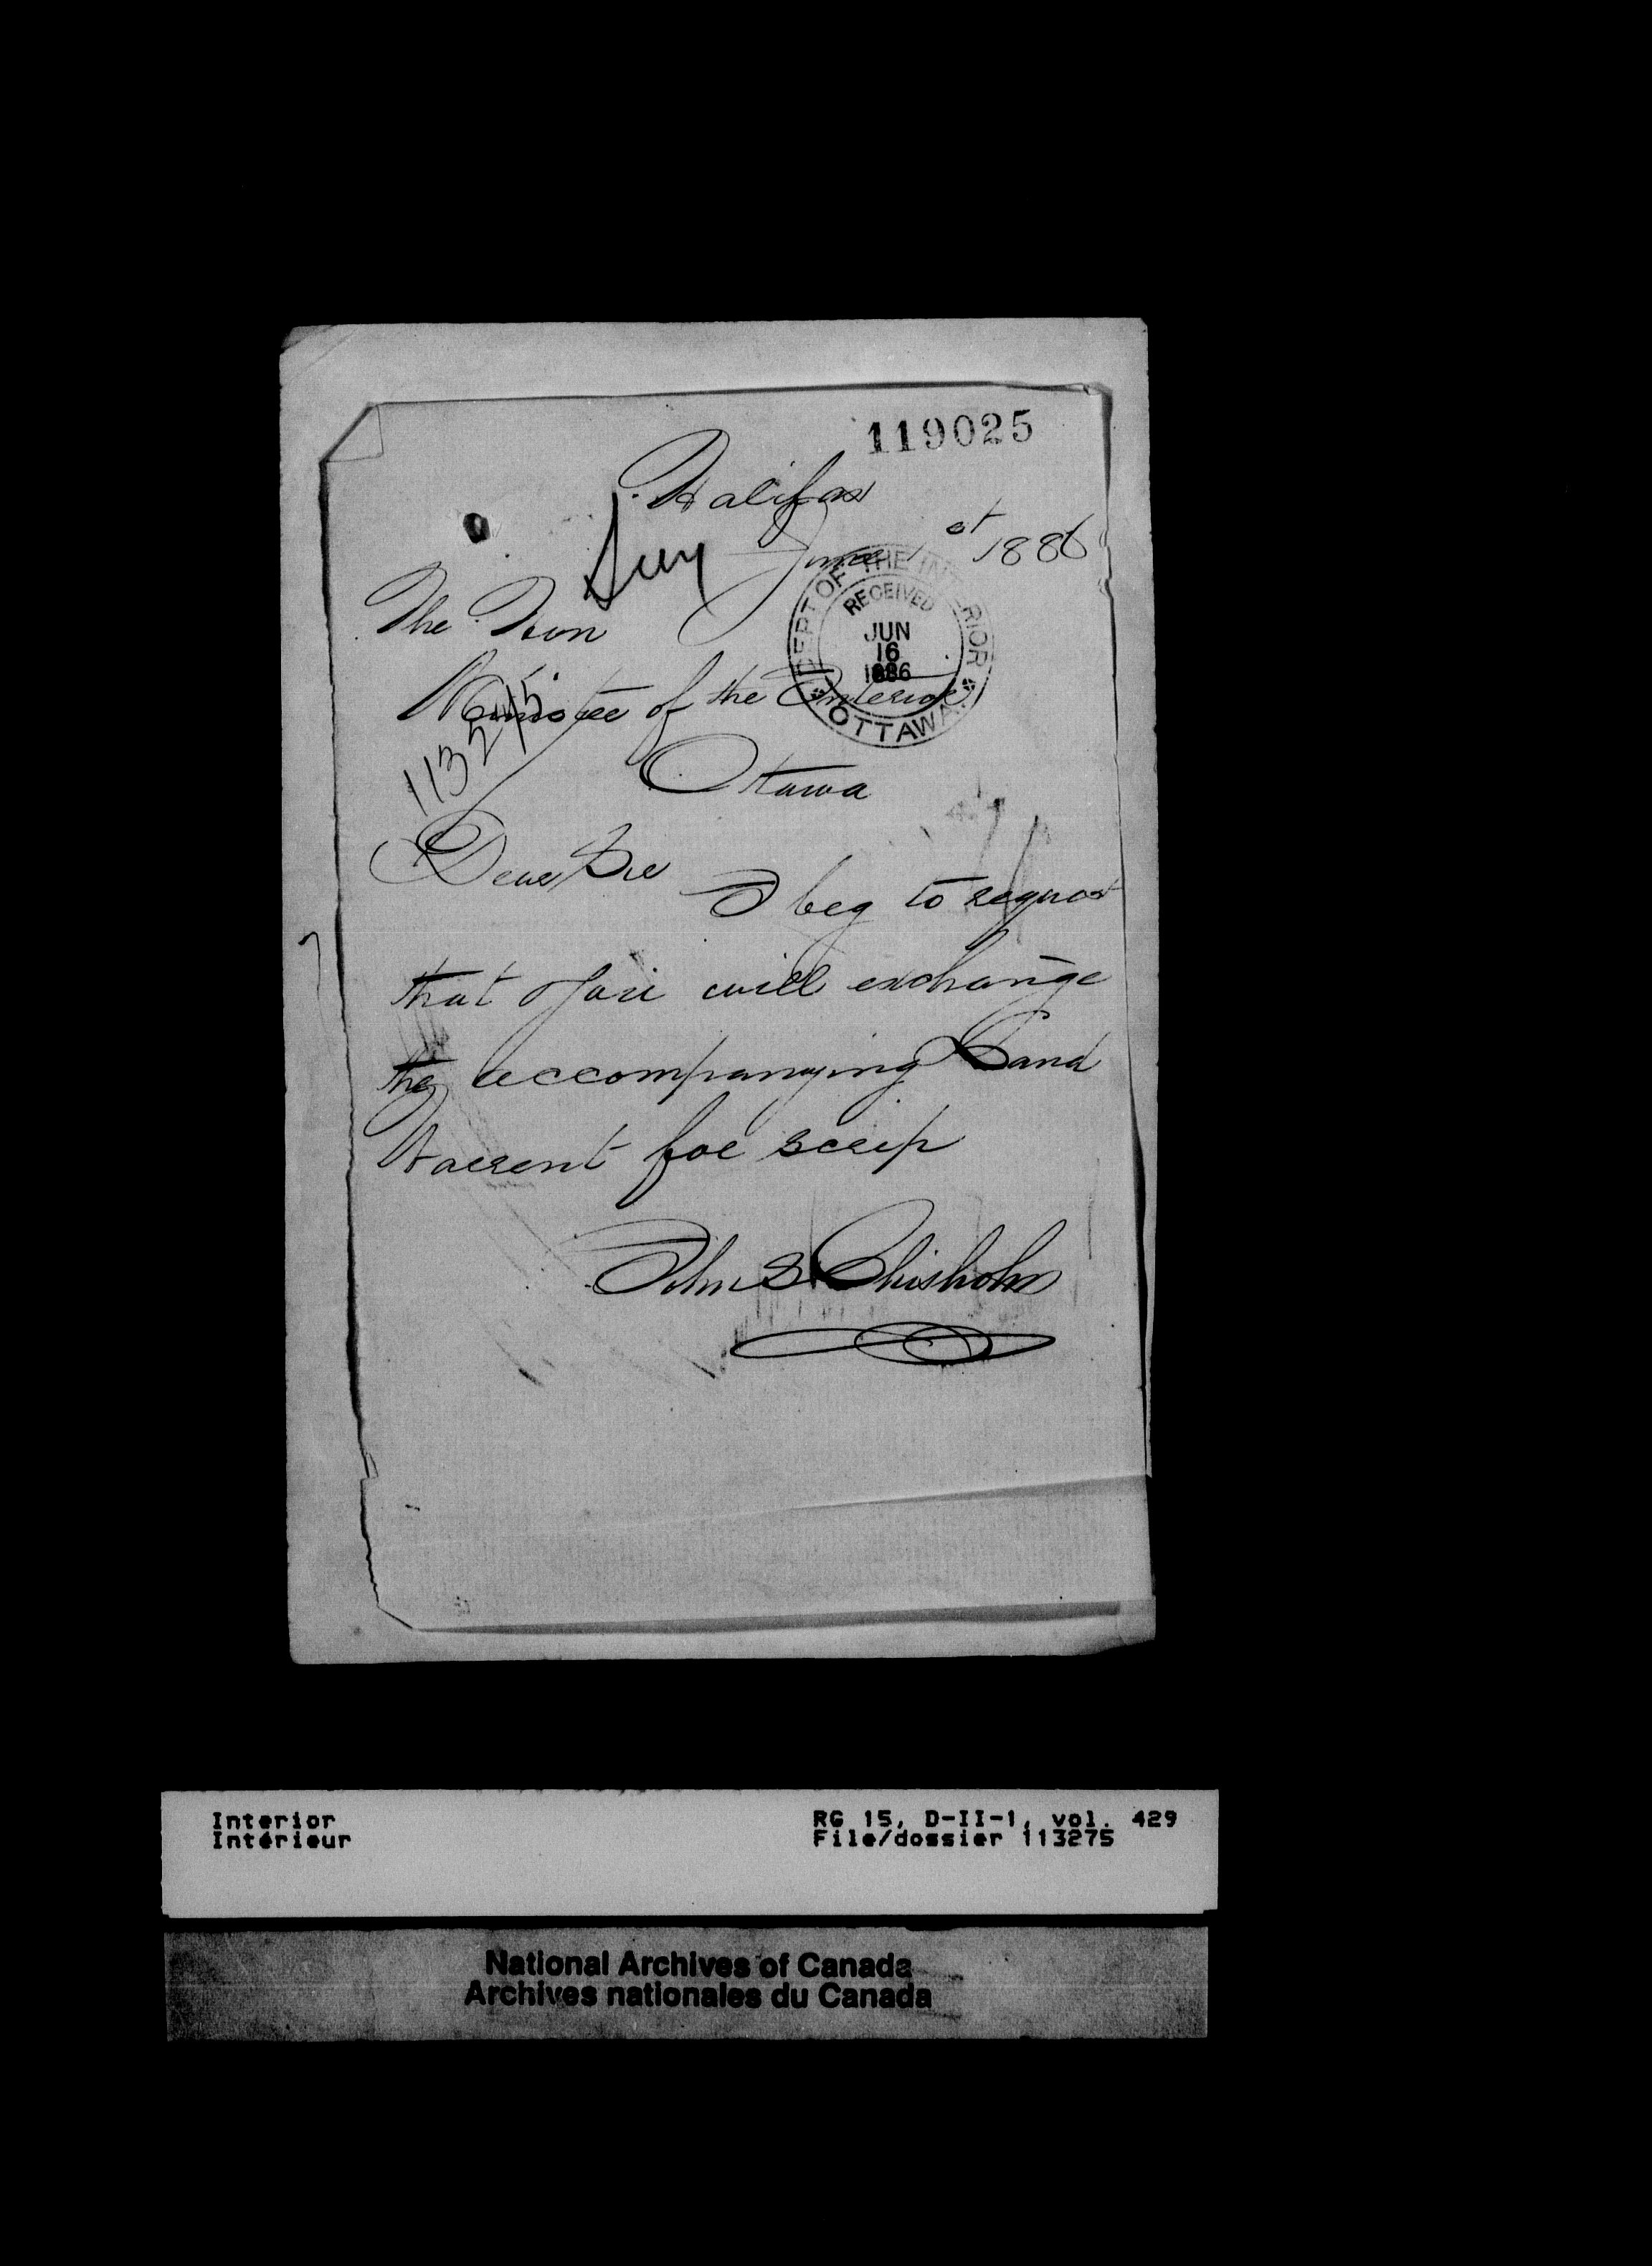 119025
Halifax
June 1st 1886
The Hon
Minister of the Interior
Ottawa
113275
DEPT OF THE INTERIOR
RECEIVED
JUN
16
1886
OTTAWA
Dear Sir
I beg to request
that you will exchange
the accompanying Land
Warrent for scrip
John S Chisholm
Interior
Intérieur
RG 15, D-II-1, vol. 429
File/dossier 113275
National Archives of Canada
Archives nationales du Canada